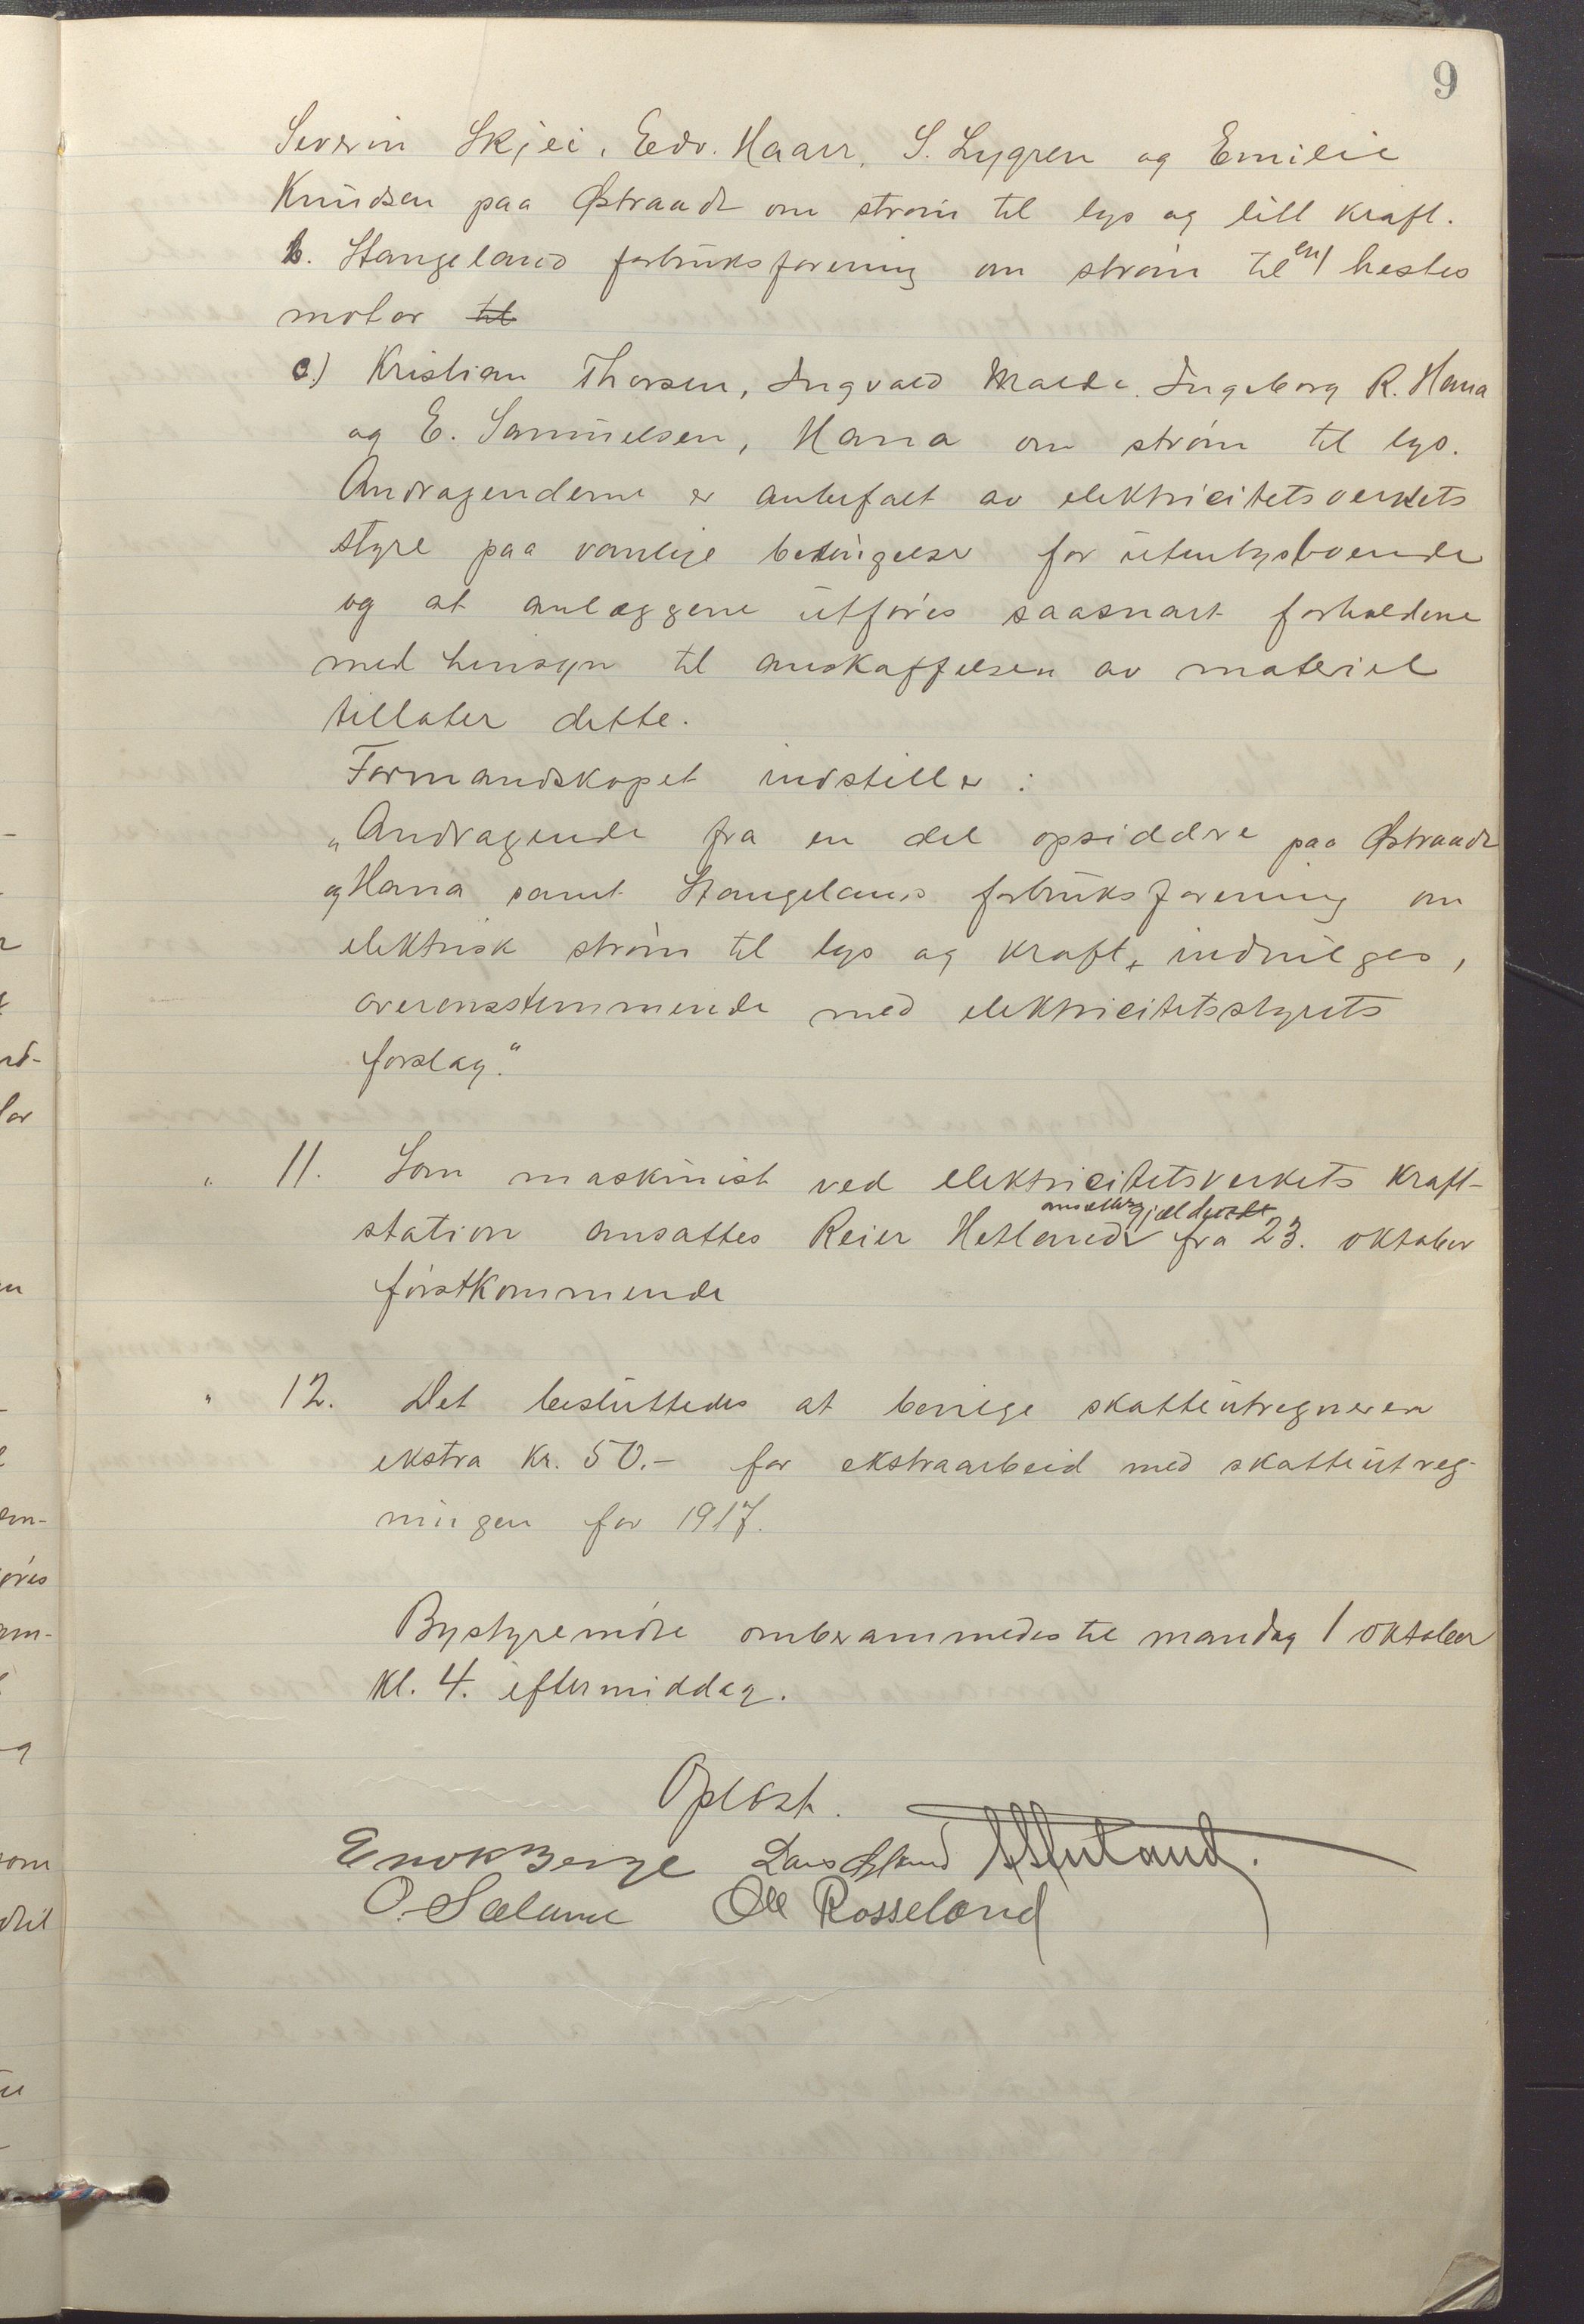 9
Severin Skjei, Edv. Haarr, S. Lygren og Emilie
Knudsen paa Østraadt om strøm til lys og litt kraft.
b. Stangeland forbruksforening om strøm til en 1 hestes
motor til
c.) Kristian Thorsen, Ingvald Malde, Ingeborg R. Hana
og E. Samuelsen, Hana om strøm til lys.
Andragenderne er anbefalt av elektricitetsverkets
styre paa vanlige betingelser for utenbysboende
og at anlæggene utføres saasnart forholdene
med hensyn til anskaffelsen av materiel
tillater dette.
Formandskapet indstiller:
„Andragende fra en del opsiddere paa Østraadt
og Hana samt Stangelands forbruksforening om
elektrisk strøm til lys og kraft, indvilges,
overensstemmende med elektricitetsstyrets
forslag.“
" 11. Som maskinist ved elektricitetsverkets kraft-
station ansattes Reier Hetland ansættes gjeldende fra 23. oktober
førstkommende
" 12. Det besluttedes at bevilge skatteutregneren
ekstra kr. 50.- for ekstraarbeid med skatteutreg-
ningen for 1917.
Bystyremøte omberammedes til mandag 1 oktober
kl. 4. eftermiddag.
Opløst.
Enok Berge Lars
O. Sæland Ole Rosseland